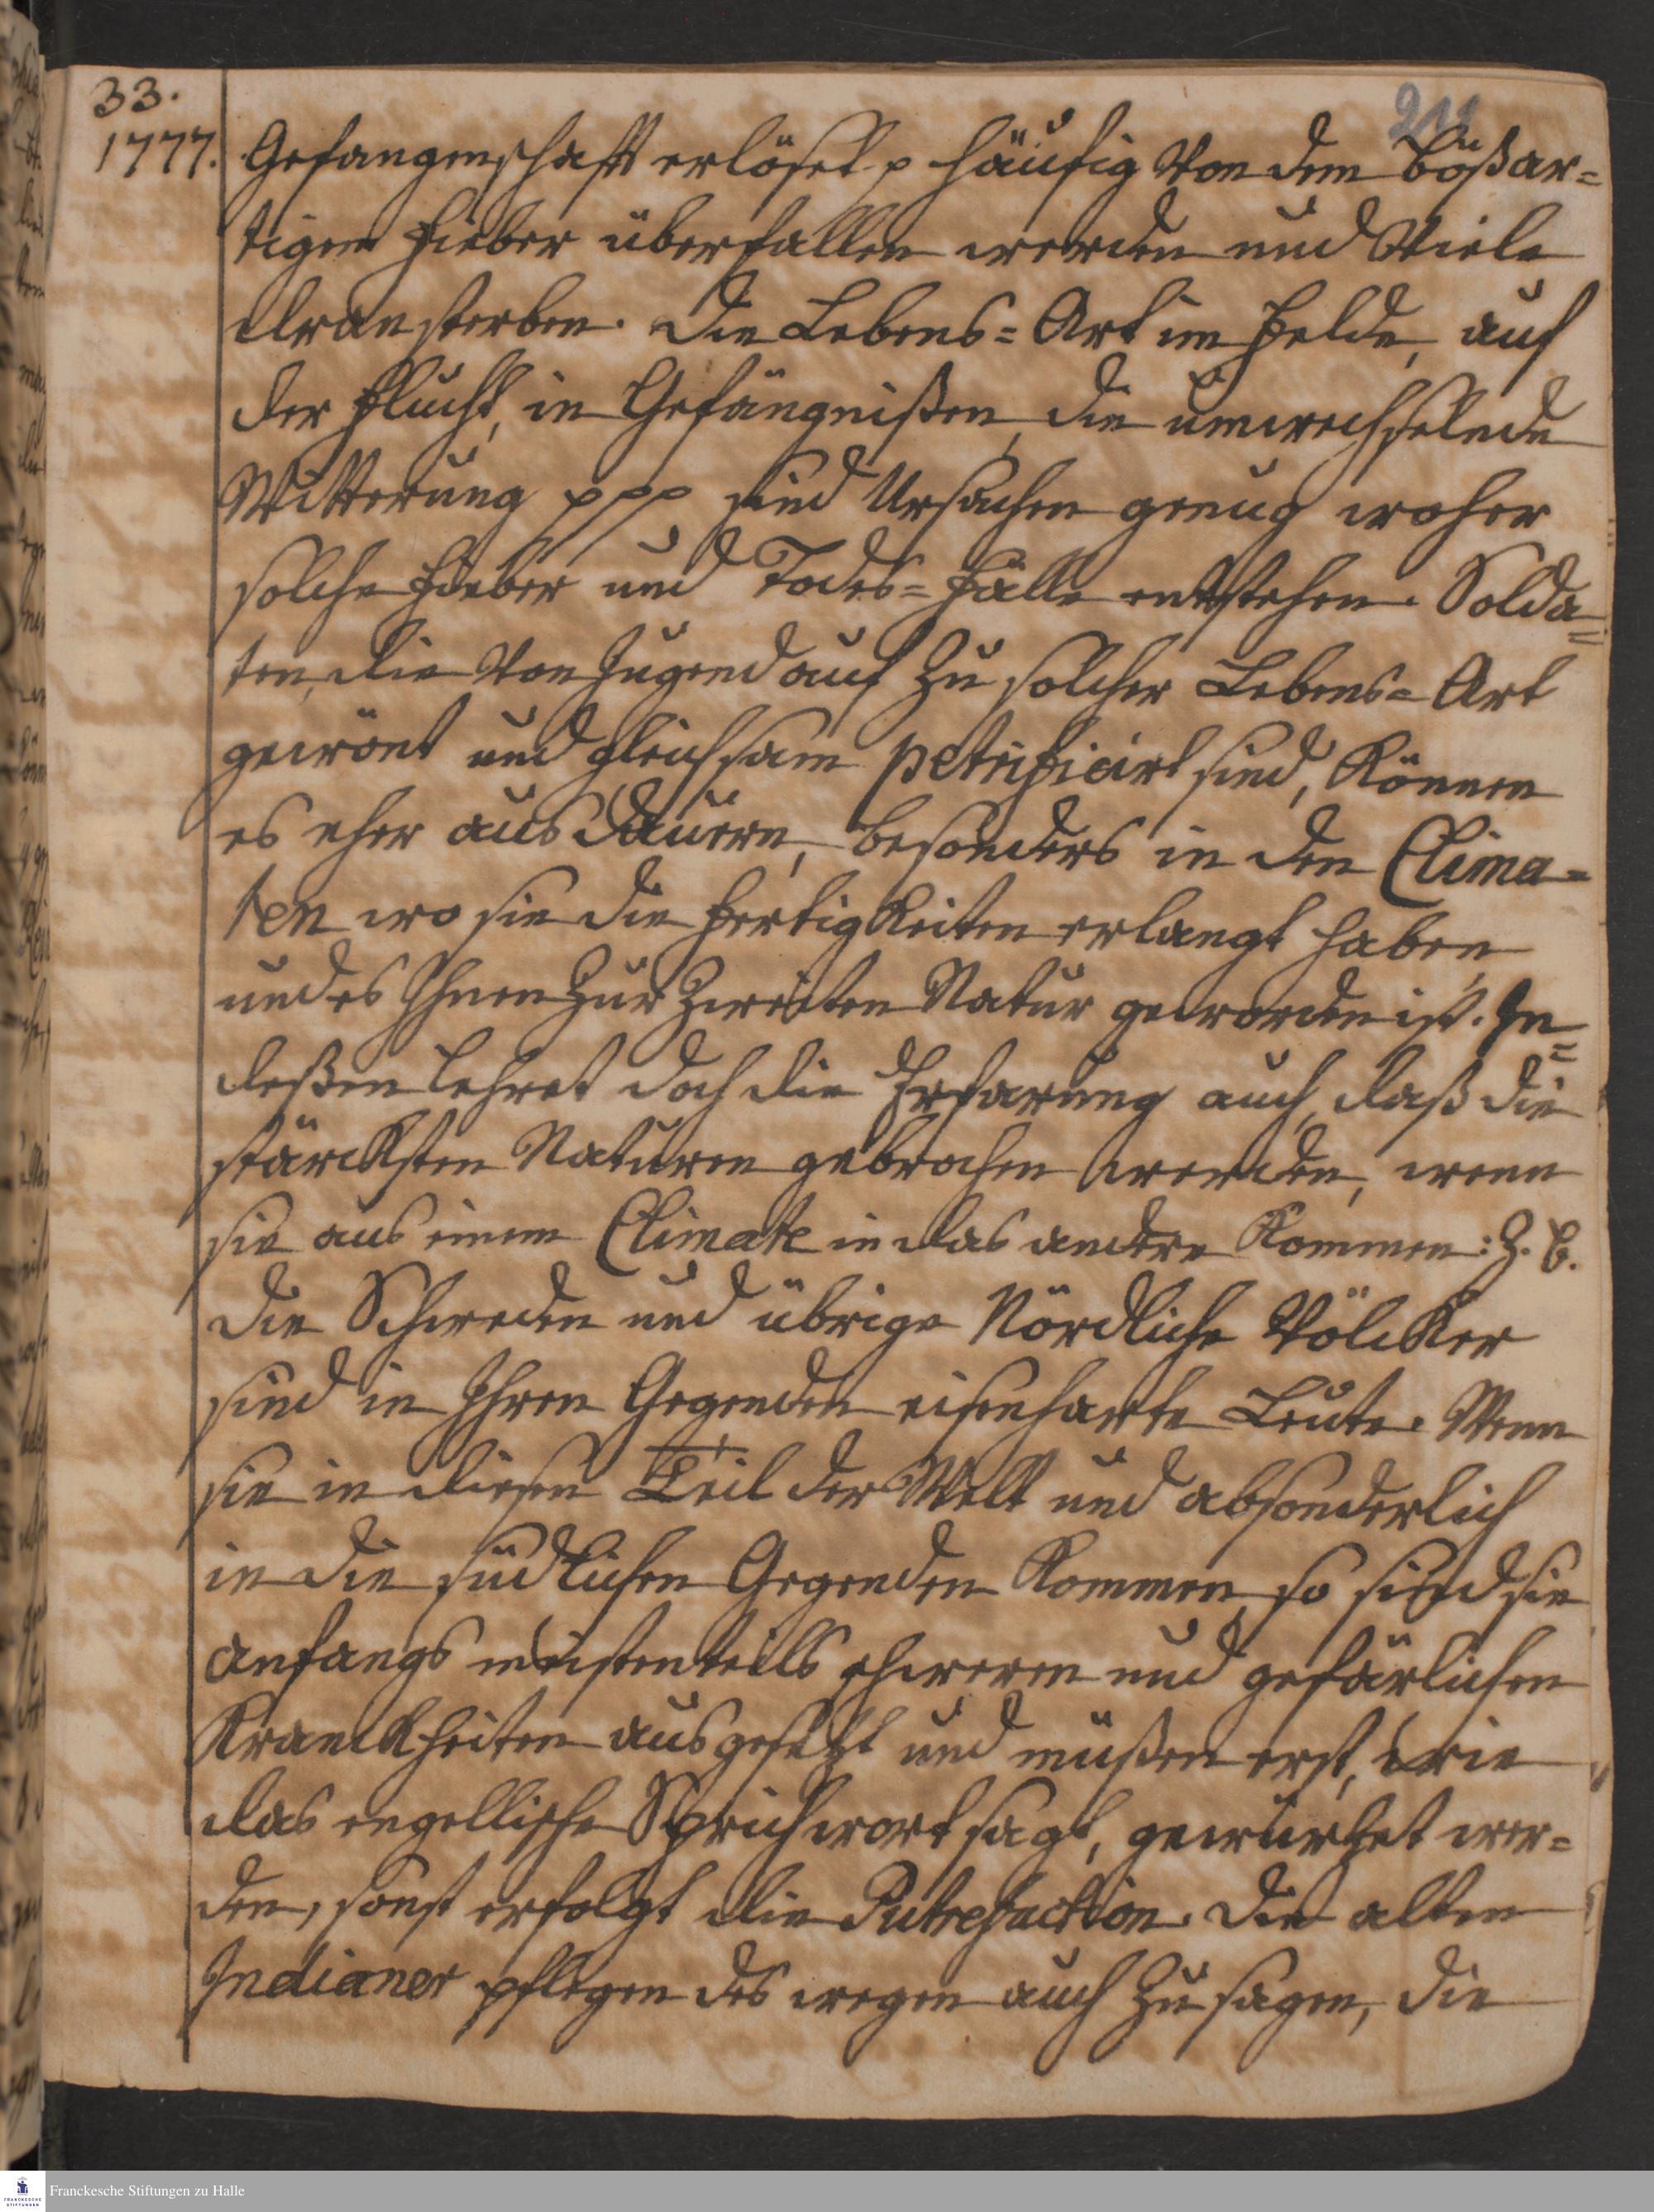 33.
211
1777.
Gefangenschafft erlöset p häufig von dem bößar=
tigen Fieber überfallen werden und viele
dran sterben. Die Lebens=Art im Felde, auf
der Flucht, in Gefängnißen, die umwechselnde
Witterung ppp sind Ursachen genug woher
solche Fieber und Todes=Fälle entstehen. Solda=
ten, die von Jugend auf zu solcher Lebens=Art
gewönt und gleichsam petrificirt sind, können
es eher ausdauren, besonders in den Clima=
ten wo sie die Fertigkeiten erlangt haben
und es Ihnen zur zweiten Natur geworden ist. In=
deßen lehret doch die Erfarung auch, daß die
stärcksten Naturen gebrochen werden, wenn
sie aus einem Climate in das andere kommen: Z. E.
die Schweden und übrige Nördliche Völcker
sind in Ihren Gegenden eisenharte Leute. Wenn
sie in diesen Teil der Welt und absonderlich
in die südlichen Gegenden kommen, so sind sie
anfangs meistenteils schweren und gefärlichen
Kranckheiten ausgesetzt und müßen erst, wie
das engellische Sprichwort sagt, gewürtzet wer=
den, sonst erfolgt die Putrefaction. Die alten
Indianer pflegen des wegen auch zu sagen, die
Franckesche Stiftungen zu Halle